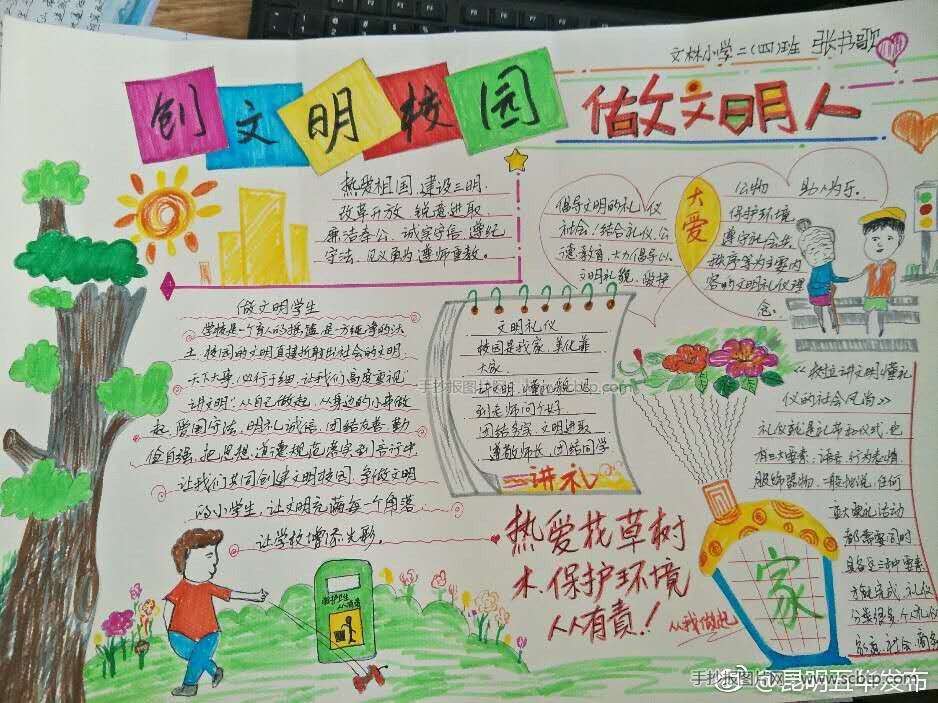 文林小学二(四)班 张书歌
创文明校园
做文明人
热爱祖国 建设三明
改革开放 锐意进取
廉洁奉公、诚实守信 遵纪
守法、见义勇为 遵师重教。
倡导文明的礼仪
社会！结合礼仪、公
德教育、大力倡导以
文明礼貌、爱护
大爱
公物 助人为乐、
保护环境
遵守礼合法、
秩序等为主要内
容的文明礼仪理
念。
做文明学生
学校是一个育人的摇篮 是一方纯净的沃
土 校园的文明直接折射出社会的文明
天下大事，必行于细，让我们高度重视
讲文明：从自己做起，从身边的小事做
起 爱国守法、明礼诚信、团结友善、勤
俭自强、把思想、道德规范落实到言行中
让我们共同创建文明校园 争做文明
的小学生，让文明充满每一个角落
让学校增添光彩。
文明礼仪
校园是我家 美化靠
大家
讲文明 懂礼貌 遇
到老师问个好
团结务实 文明进取
尊敬师长 团结同学
讲礼
《树立讲文明、懂礼
仪的社会风尚》
礼仪就是礼节和仪式、也
有四大要素、语言、行为表情、
服饰器物、一般地说，任何
重大典礼活动
都需要同时
具备这三种要素
方能完成、礼仪
分类很多、个人礼仪
家庭、社会、商务
热爱花草树
木、保护环境
人人有责！
从我做起
家
爱护卫生
人人有责
手抄报图片网 www.scbtp.com
手抄报图片网 www.scbtp.com
@昆明五华发布